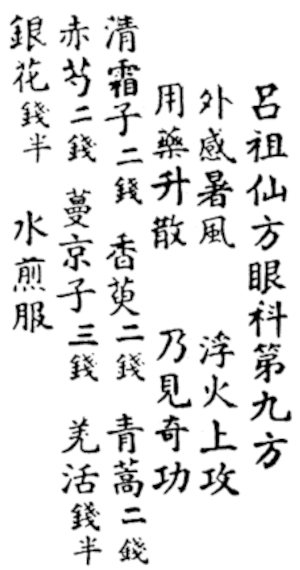 呂祖仙方眼科第九方
外感暑風　浮火上攻
用藥升散　乃見奇功
清霜子二錢　香茰二錢　青蒿二錢
赤芍二錢　蔓京子三錢　羌活錢半
銀花錢半　水煎服